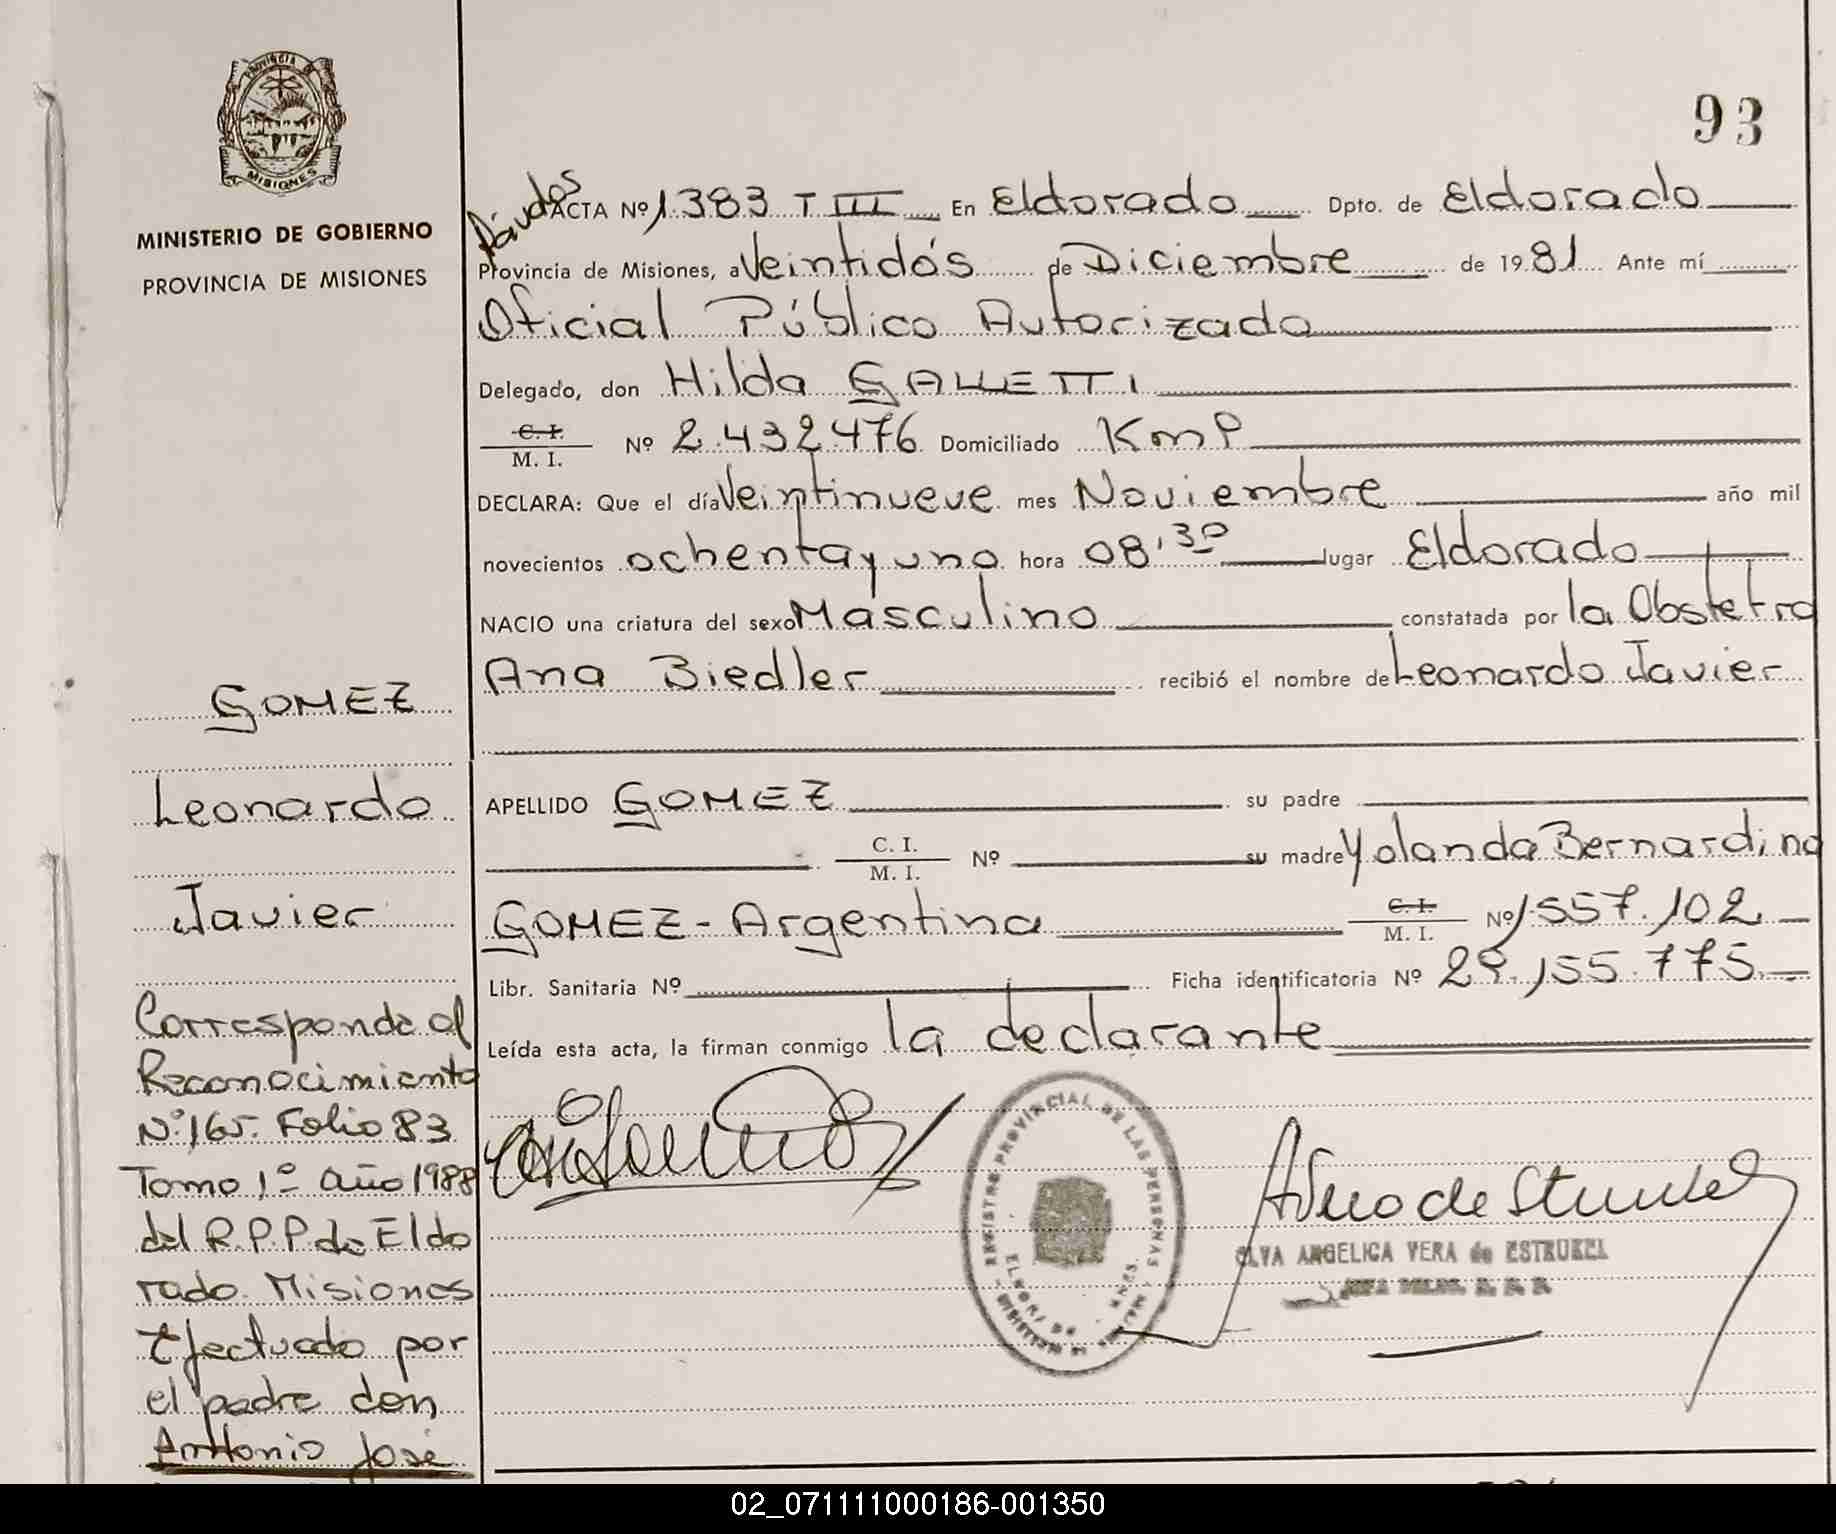 PROVINCIA DE
MISIONES
MINISTERIO DE GOBIERNO
PROVINCIA DE MISIONES
93
ACTA Nº 1383 T III En Eldorado Dpto. de Eldorado
Provincia de Misiones, a Veintidós de Diciembre de 1981 Ante mí
Oficial Público Autorizado
Delegado, don Hilda GALLETTI
C. I.
M. I. Nº 2.432476 Domiciliado Km 9
DECLARA: Que el día Veintinueve mes Noviembre año mil
novecientos ochenta y uno hora 08,30 lugar Eldorado
NACIO una criatura del sexo Masculino constatada por la Obstetra
Ana Biedler recibió el nombre de Leonardo Javier
APELLIDO GOMEZ su padre
C. I.
M. I. Nº su madre Yolanda Bernardina
GOMEZ - Argentina C. I.
M. I. Nº 1.557.102
Libr. Sanitaria Nº Ficha identificatoria Nº 29.155.775
Leída esta acta, la firman conmigo la declarante
GOMEZ
Leonardo
Javier
Corresponde al
Reconocimiento
Nº 165. Folio 83
Tomo 1º año 1988
del R.P.P de Eldo
rado. Misiones
Efectuado por
el padre don
Antonio José
REGISTRO PROVINCIAL DE LAS PERSONAS
ELVA ANGELICA VERA de ESTRUKEL
02_071111000186-001350